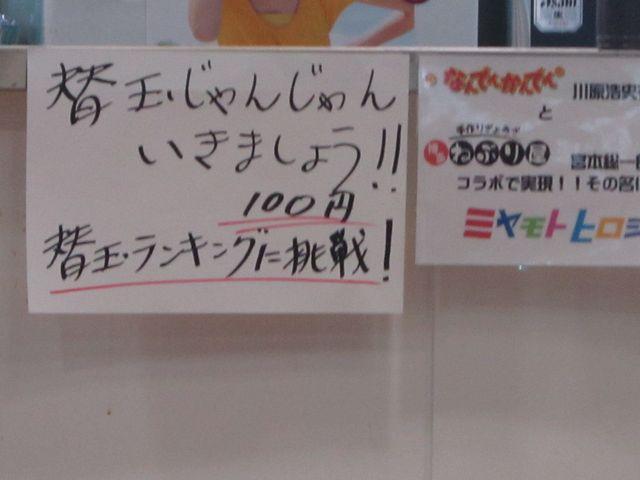 替玉じゃんじゃん
いきましょう!!
100円
替玉ランキングに挑戦!
なんでんかんでん
川原浩史
と
手作りぎょうざ
宮本総一
コラボで実現!!その名
ミヤモトヒロシ
Asahi